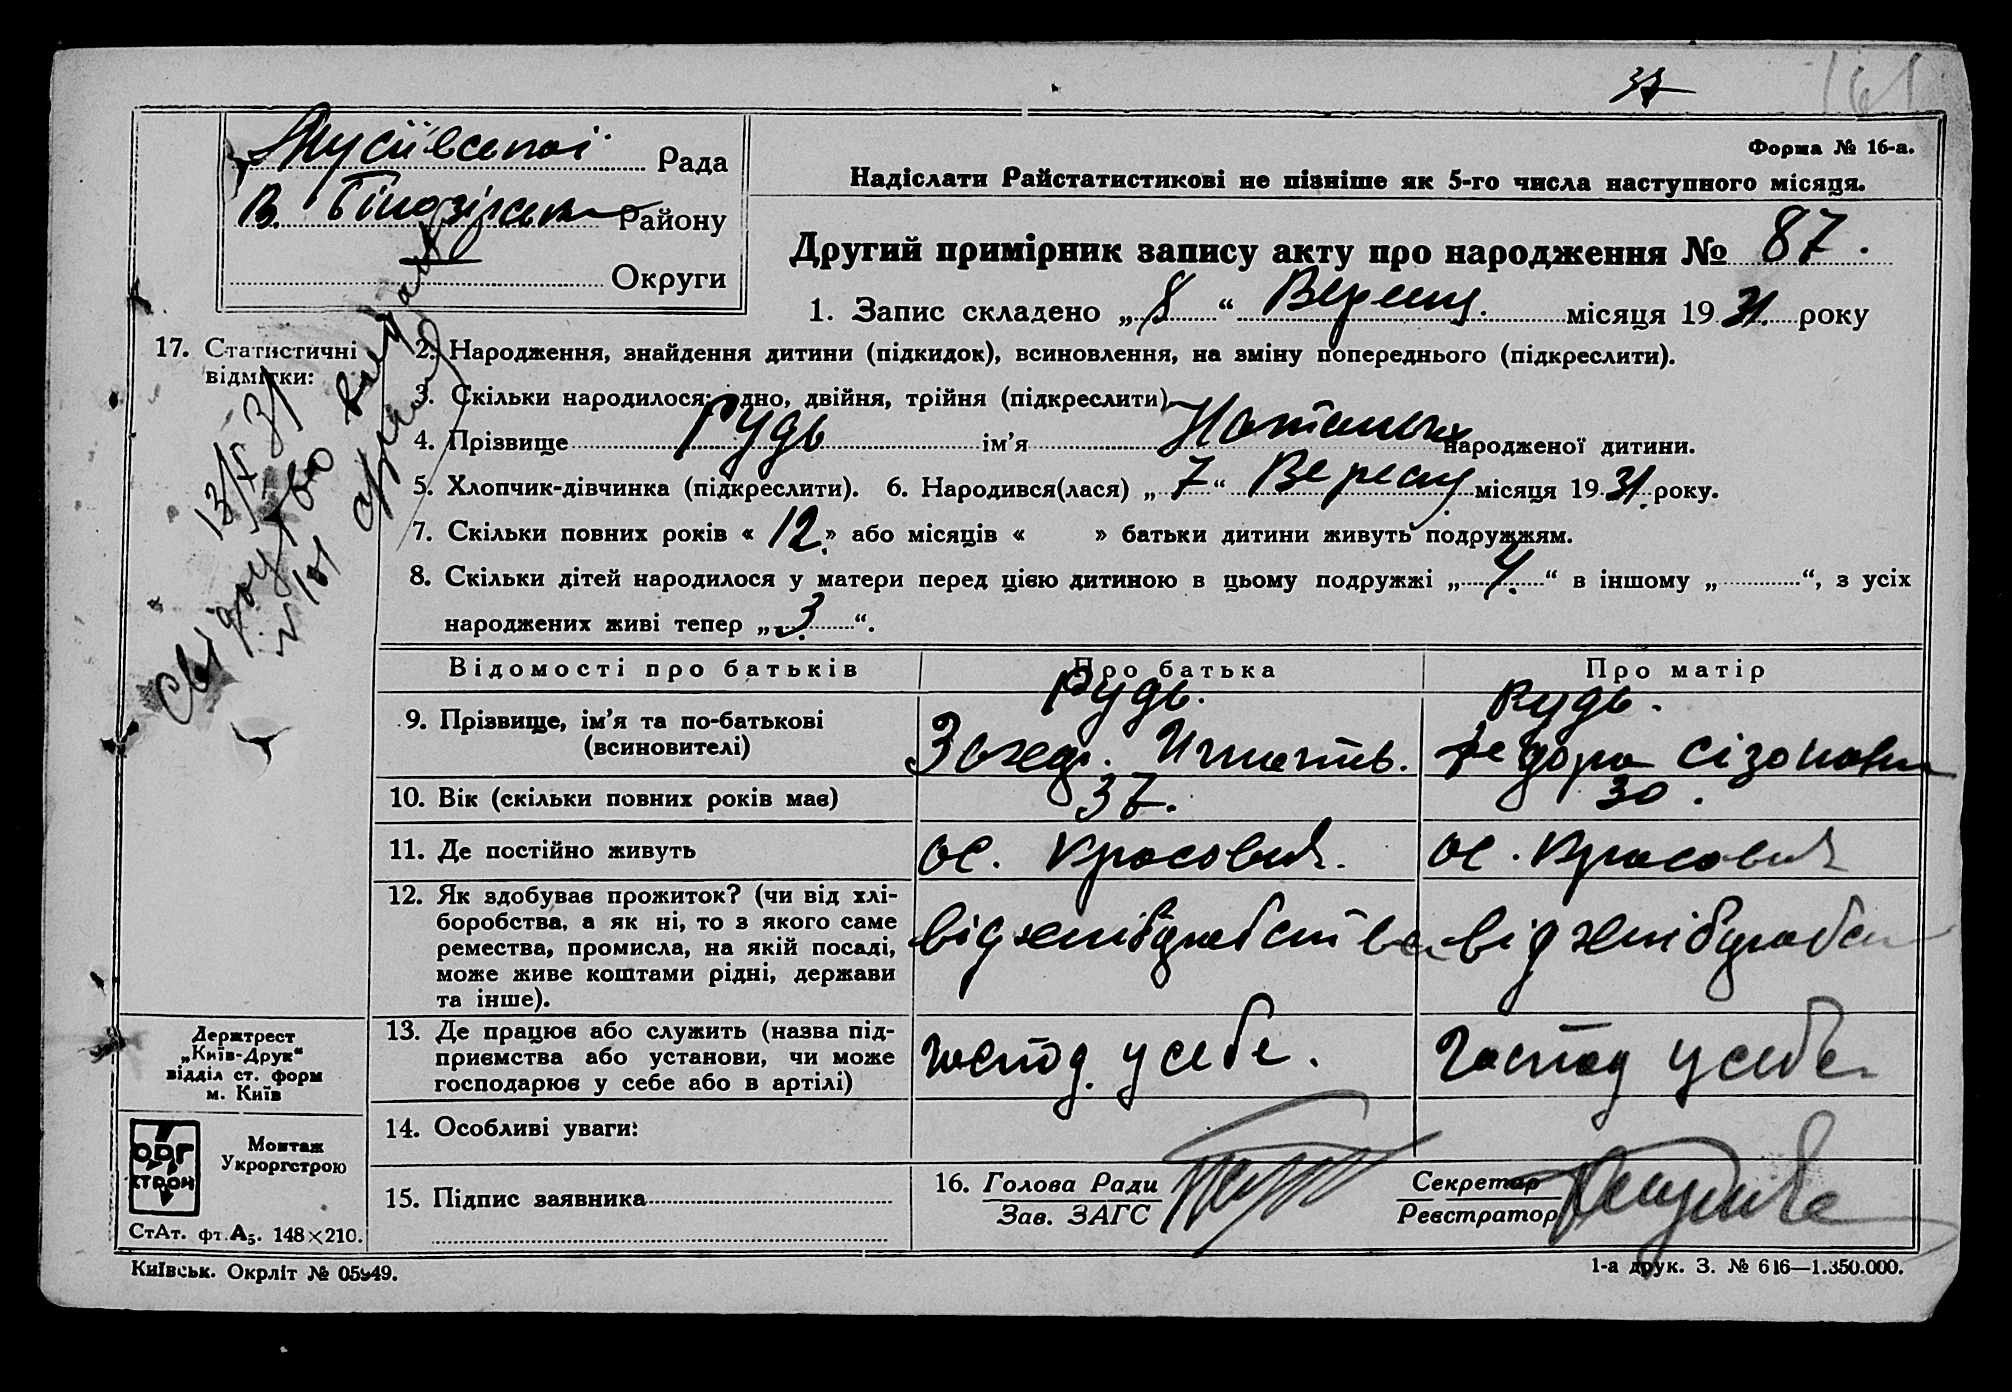 Форма № 16-а.
Рада
В. Білозірськ Району
Округи
Надіслати Райстатистикові не пізніше як 5-го числа наступного місяця.
Другий примірник запису акту про народження № 87.
1. Запис складено „8“ Вересня місяця 1931. року
17. Статистичні відмітки:
Свідоцтво видано
13/X 31
№ 101
2. Народження, знайдення дитини (підкидок), всиновлення, на зміну попереднього (підкреслити).
3. Скільки народилося: одно, двійня, трійня (підкреслити).
4. Прізвище Рудь ім’я Наталька народженої дитини.
5. Хлопчик-дівчинка (підкреслити). 6. Народився(лася) „7“ Вересня місяця 1931. року.
7. Скільки повних років « 12. » або місяців « » батьки дитини живуть подружжям.
8. Скільки дітей народилося у матери перед цією дитиною в цьому подружжі „4.“ в іншому „ “, з усіх
народжених живі тепер „3.“.
Відомості про батьків Про батька Про матір
9. Прізвище, ім’я та по-батькові (всиновителі)
Рудь.
Захар. Игнатів.
Рудь.
Федора Сізоновна
10. Вік (скільки повних років має) 37. 30.
11. Де постійно живуть
ос. Красовка.
ос. Красовка
12. Як здобуває прожиток? (чи від хлі-
боробства, а як ні, то з якого саме
ремества, промисла, на якій посаді,
може живе коштами рідні, держави
та інше).
від хліборобства
від хлібороб
13. Де працює або служить (назва під-
приємства або установи, чи може
господарює у себе або в артілі)
господ. у себе.
господ у себе
14. Особливі уваги:
15. Підпис заявника
16. Голова Ради
Зав. ЗАГС
Секретар
Реєстратор
Держтрест
„Київ-Друк“
відділ ст. форм
м. Київ
ОРГ
СТРОМ
Монтаж
Укроргстрою
СтАт. фт. А₅. 148×210.
Київськ. Окрліт № 05949.
1-а друк. З. № 616—1.350.000.